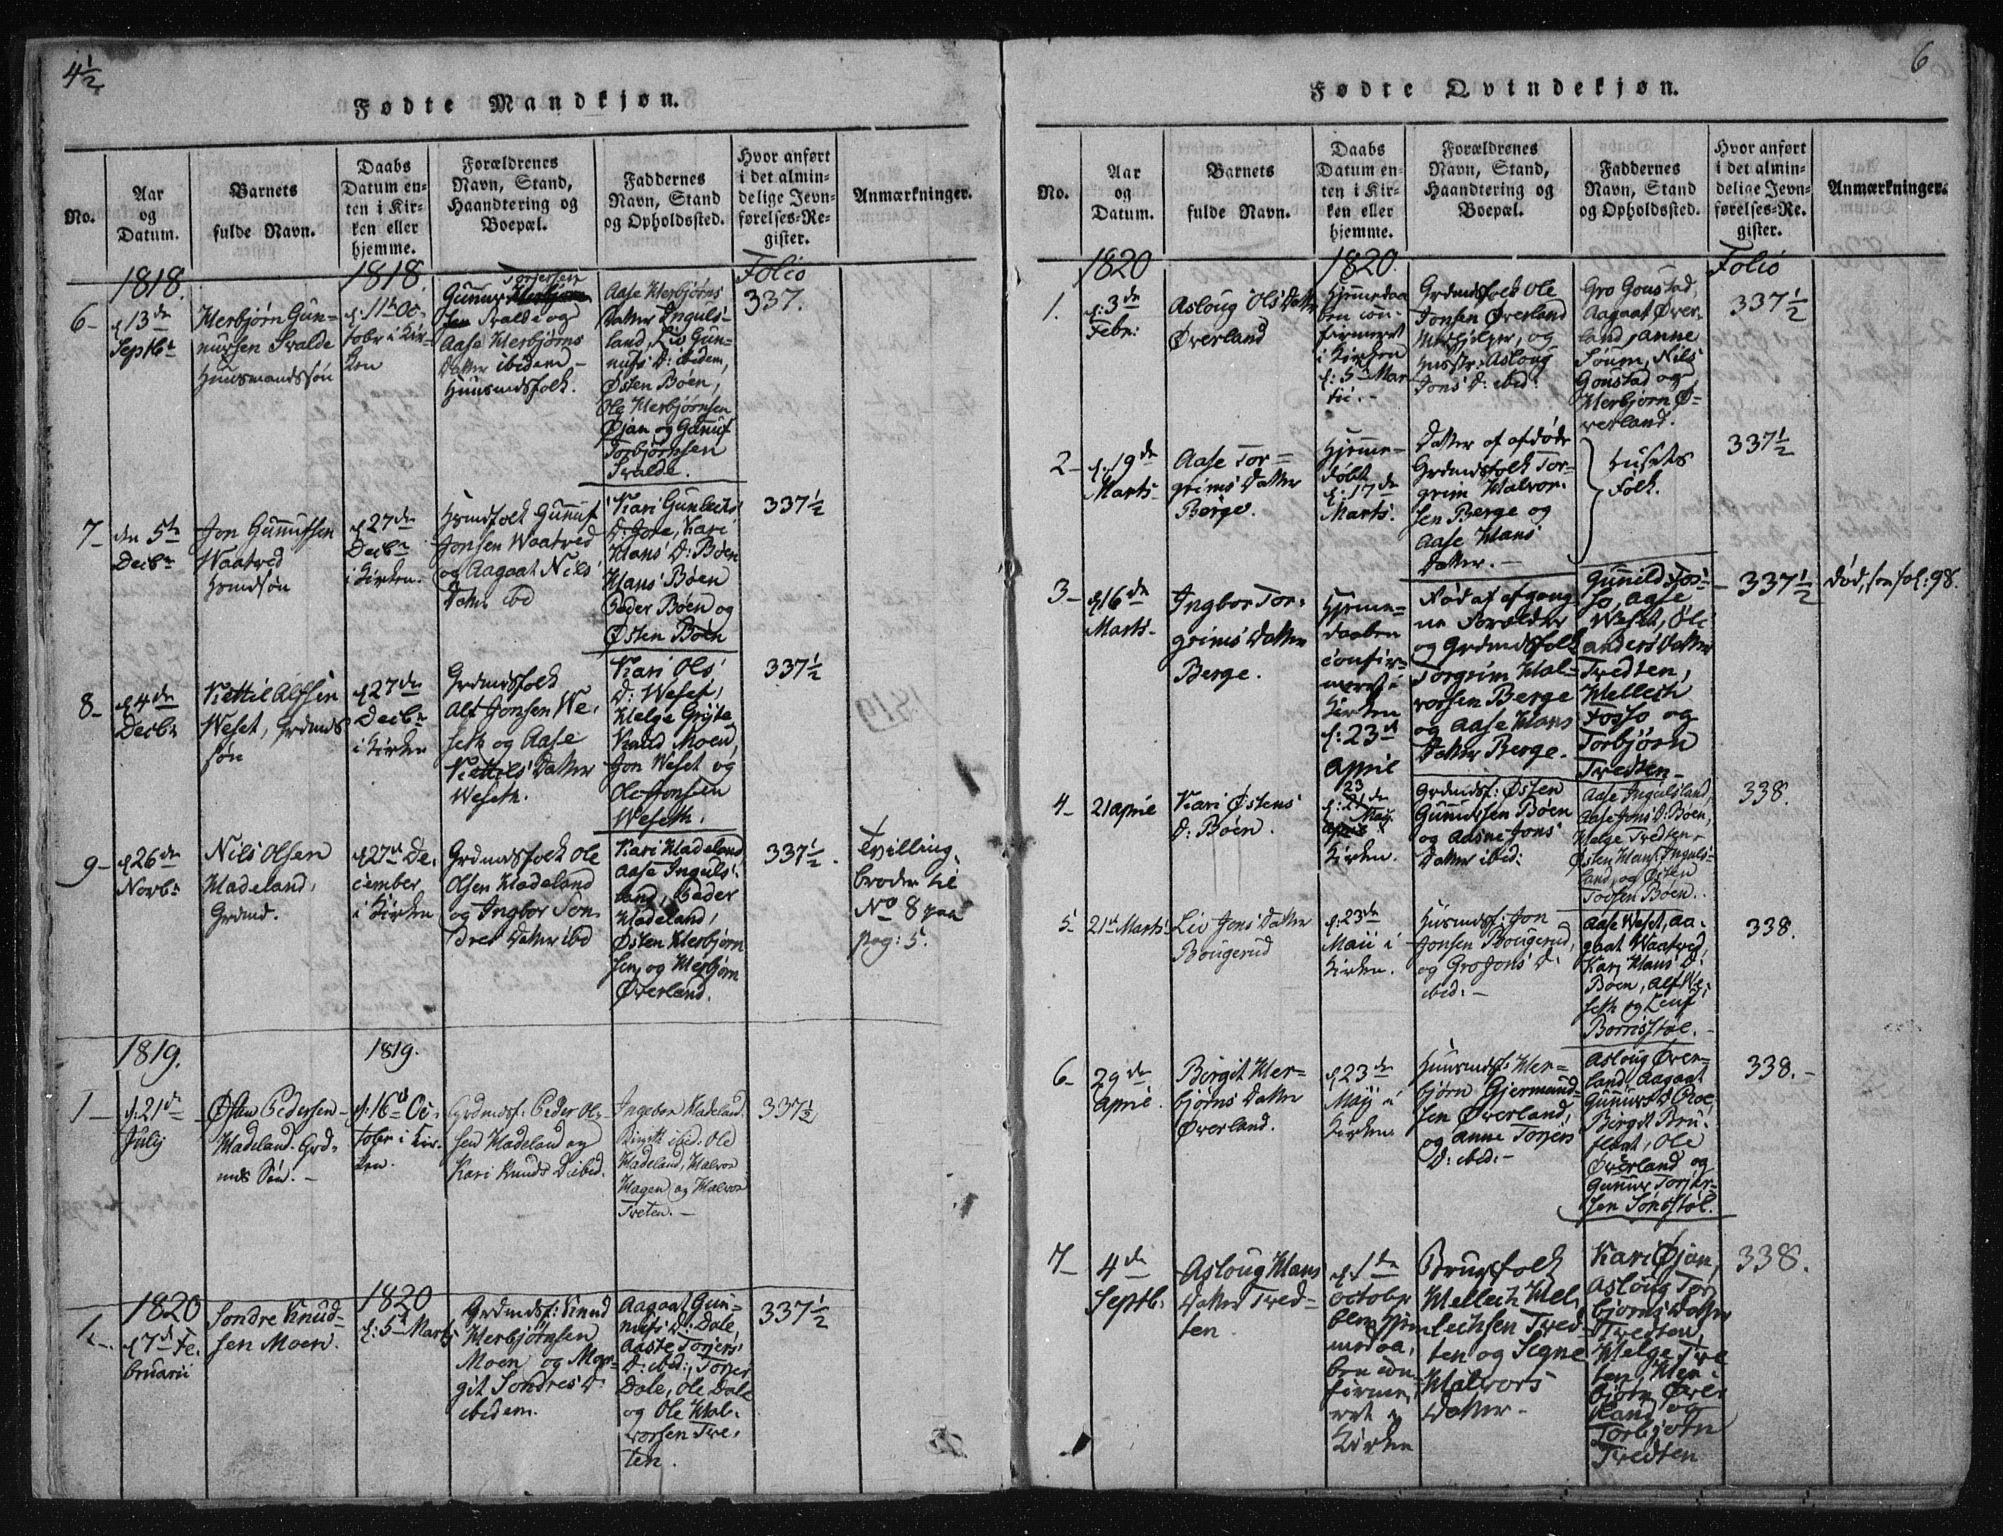 4½
Fødte Mandkjøn.
No.
Aar
og
Datum.
Barnets
fulde Navn.
Daabs
Datum en-
ten i Kir-
ken eller
hjemme.
Forældrenes
Navn, Stand,
Haandtering og
Boepæl.
Faddernes
Navn, Stand
og Opholdssted.
Hvor anført
i det almin-
delige Jevn-
førelses-Re-
gister.
Anmærkninger.
1818.
1818.
Folio
6-
d. 13de
Septbr
Herbjørn Gun-
nufsen Tralde
Huusmandssøn
d: 11te Oc-
tobr i Kir-
ken
Torjersen
Gunnuf
Tralde og
Aase Herbjørns
Datter ibidem -
Huusmdsfolk.
Aase Herbjørns
Datter Inguls-
land, Liv Gun-
nufs D: ibidem,
Østen Bøen,
Ole Herbjørnsen
Øjan og Gunnuf
Torbjørnsen
Tralde.
337.
7-
den 5te
Decbr
Jon Gunnufsen
Waatved
Hsmdsøn
d 27de
Decbr
i Kirken.
Hsmdfolk Gunnuf
Jonsen Waatved
og Aagaat Nils
Datter ibd
Kari Gunleiks
D: Jore, Kari
Hans D: Bøen
Hans Bøen
Peder Bøen og
Østen Bøen
337½
8-
d 4de
Decbr
Kettil Alfsen
Weset, Grdmds
søn
d 27de
Decbr
i Kirken
Grdmdsfolk
Alf Jonsen We-
seth og Aase
Kettils Datter
Weseth.
Kari Ols
D: Weset,
Helge Gryte
Knud Moen,
Jon Weset og
Ole Jonsen
Weseth.
337½
9-
d 26de
Novbr
Nils Olsen
Hadeland,
Grdmd.
d 27de De-
cember
i Kirken
Grdmdsfolk Ole
Olsen Hadeland
og Ingbor Son-
dres Datter ibd
Kari Hadeland
Aase Inguls-
land, Peder
Hadeland,
Østen Herbjørn-
sen, og Herbjørn
Øverland.
337½.
Tvilling-
broder til
No 8 paa
pag: 5.
1819.
1819.
1-
d: 21de
July
Østen Pedersen
Hadeland. Grd-
mds Søn. -
d. 16de Oc-
tobr i Kir-
ken.
Grdmdsf: Peder Ol-
sen Hadeland og
Kari Knuds D: ibd.
Ingebor Hadeland
Birgith ibid. Ole
Hadeland, Halvor
Hagen og Halvor
Treten. -
337½
1820
1820
1.
d 7de Fe-
bruarii
Sondre Knud-
sen Moen.
d: 5te Marts
Grdmdsf: Knud
Herbjørnsen
Moen og Mar-
git Sondres D:
ibidem.
Aagaat Gun-
nufs D: Dale,
Aaste Torjers
D: ibid:, Torjer
Dale, Ole Dale
og Ole Hal-
vorsen Tre-
ten.
337½
6
Fødte Qvindekjøn.
No.
Aar
og
Datum.
Barnets
fulde Navn.
Daabs
Datum en-
ten i Kir-
ken eller
hjemme.
Forældrenes
Navn, Stand,
Haandtering og
Boepæl.
Faddernes
Navn, Stand
og Opholdssted.
Hvor anført
i det almin-
delige Jevn-
førelses-Re-
gister.
Anmærkninger.
1820
1820.
Folio
1.
d: 3de
Febr:
Asloug Ols Datter
Øverland
Hjemmedaa-
ben con-
firmeret
i Kirken
d: 5te Mar-
tii. -
Grdmdsfolk Ole
Jonsen Øverland
Medhjelper, og
Hustr: Asloug
Jons D: ibid:
Gro Goustad,
Aagaat Øver-
land, Anne
Søum, Nils
Goustad og
Herbjørn Ø-
verland.
337½
2-
d: 19de
Marts-
Aase Tor-
grims Datter
Berge.
Hjemme-
døbt
d: 17de
Marts.
Datter af afdøde
Grdmdsfolk Tor-
grim Halvor-
sen Berge og
Aase Hans
Datter. -
Husets
Folk.
337½
3-
d 16de
Marts-
Ingbor Tor-
grims Datter
Berge.
Hjemme-
daaben
confir-
meret i
Kirken
d: 23de
April
Fød af afgang-
ne Forældre
og Grdmdsfolk
Torgrim Hal-
vorsen Berge
og Aase Hans
Datter Berge.
Gunnild Fos-
so, Aase
Weset, Oli
Anders Datter
Tredten,
Hellech
Fosso og
Torbjørn
Tredten-
337½
Død, see fol: 98.
4-
21 April
Kari Østens
D: Bøen.
23
d: de
May i
Kirken.
Grdmdsf: Østen
Gunnufsen Bøen
og Aasne Jons
Datter ibid:
Aase Ingulsland,
Aase Jons D: Bøen,
Helge Tredten,
Østen Hans: Inguls-
land, og Østen
Todsen Bøen.
338.
5-
21de Marts
Liv Jons Datter
Bougerud
d: 23de
Maii i
Kirken.
Husmdsf: Jon
Jonsen Bougerud,
og Gro Jons D:
ibid: -
Aase Weset, Aa-
gaat Waatved,
Kari Hans D:
Bøen, Alf We-
seth og Leuf
Borrisstøl. -
338.
6-
29de
April.
Birgit Her-
bjørns Datter
Øverland.
d 23de
Maij i
Kirken
Huusmdsf: Her-
bjørn Gjermund-
sen Øverland,
og Anne Torjers
D: ibid: -
Asloug Øver-
land, Aagaat
Gunnufs D: Roe,
Birgit Bru-
flaat, Ole
Øverland og
Gunnuf Torjer-
sen Sønstøl.
338. -
7-
4de
Septb:
Asloug Hans
Datter Tred-
ten.
d. 1de
Octobr
blev hjem-
medaa-
ben con-
firme-
ret i
Kirken
Brugsfolk
Hellech Hel-
lechsen Tred-
ten og Signe
Halvors
Datter -
Kari Øjan,
Asloug Tor-
bjørns Datter
Tredten,
Helge Tre-
ten, Her-
bjørn Øver-
land og
Torbjørn
Tredten
338.